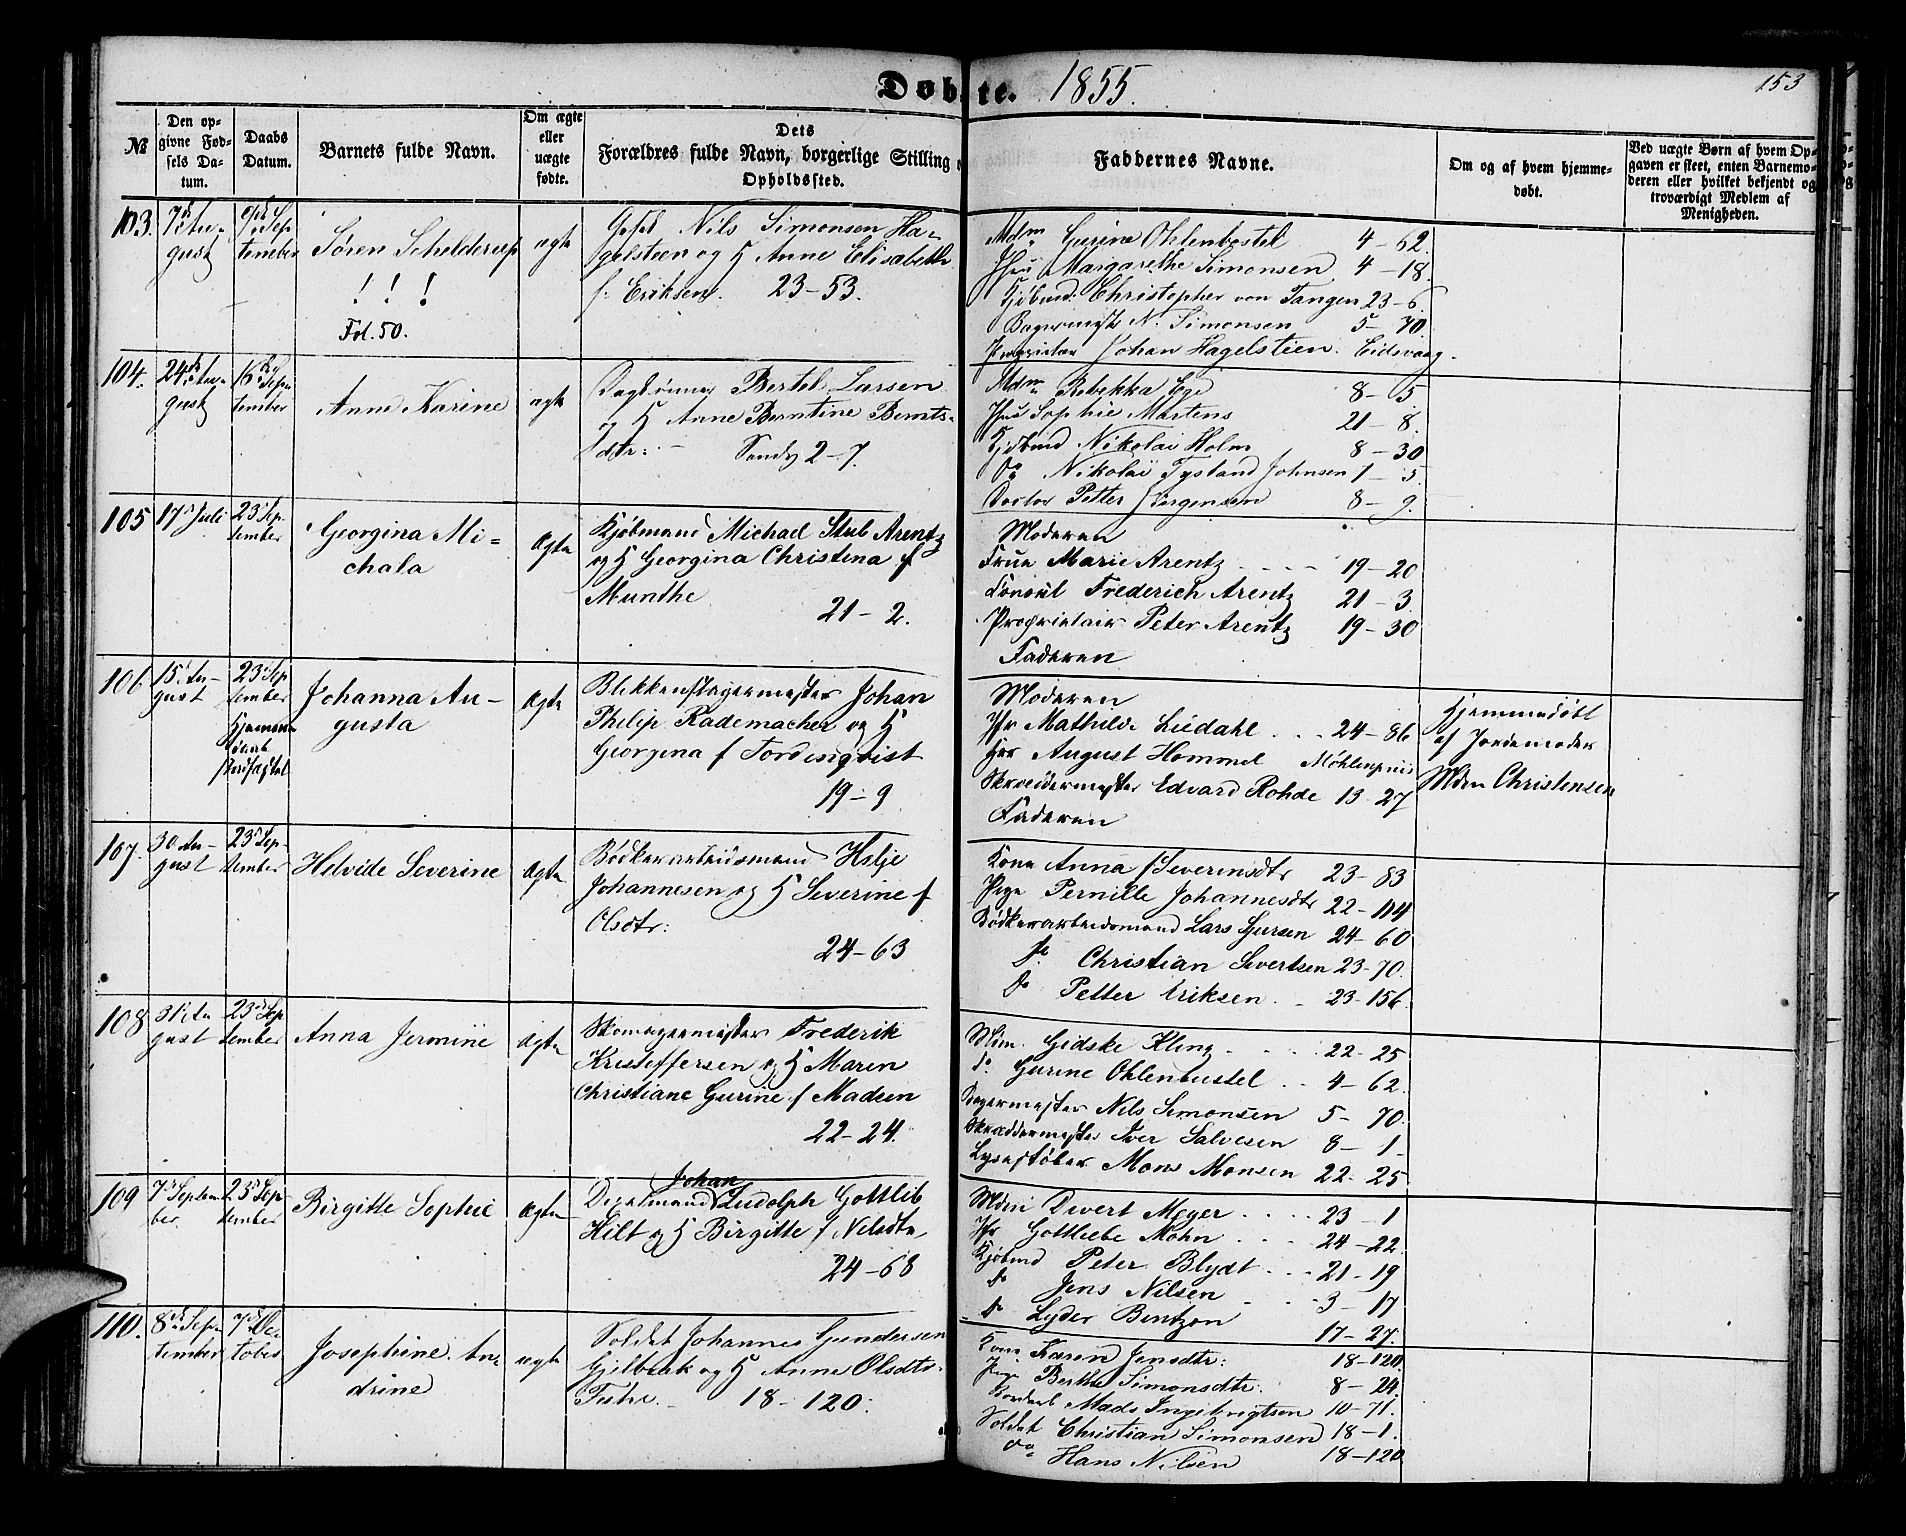 Døbte. 1855.
153
№
Den opgivne Fødsels Datum.
Daabs Datum.
Barnets fulde Navn.
Om ægte eller uægte fødte.
Dets Forældres fulde Navn, borgerlige Stilling o
Opholdssted.
Faddernes Navne.
Om og af hvem hjemmedøbt.
Ved uægte Børn af hvem Opgaven er skeet, enten Barnemoderen eller hvilket bekjendt og troværdigt Medlem af Menigheden.
103. 7de August
9de September
Søren Schelderup
! ! !
Fol. 50.
ægte
Nils Simonsen Hagelsteen og H Anne Elisabeth
f: Eriksen. 23-53.
Mdm Gurine Ohlenbostel 4-62.
Jfru Margarethe Simonsen 4-18.
Kjøbmd: Christopher von Tangen 23-6
Bagermestr N. Simonsen 5-70
Johan Hagelstien. Eidsvaag.
104. 24de August
16de September
Anne Karine
ægte
Bertel Larsen
og H Anne Berntine Bernts-
dtr: - Sandv 2-7.
Mdm Rebekka Ege 8-5
Jfru Sophie Martens 21-8.
Kjøbmd Nikolai Holm 8-30
Do Nikolai Tystand Johnsen 1-5.
Doctor Petter Jørgensen 8-9.
105 17 Juli
23 September
Georgina Mi=
chala
Ægte
Kjøbmand Michael Stub Arentz
og H Georgina Christina f
Munthe 21-2.
Moderen
Frue Marie Arentz 19-20
Consul Frederich Arentz 21-3
Proprietair Peter Arentz 19-30
Faderen
106 15 August
23 September
Hjemmedøbt
Johanna Au-
gusta
Ægte
Blikkenslagermester Johan
Philip Rademacher og H
Georgina f Tordenqvist
19-9
Moderen
Jfr Mathilde Liedahl 24-86
Hrr August Hommel Møhlenpris
Skræddermester Edvard Rohde 13-27
Faderen
Hjemmedøbt
af Jordemoder
Mdm Christensen
107. 30 August
23 September
Helvide Severine
Ægte
Bødkerarbeidsmand Helje
Johannesen og H Severine f
Olsdtr:
24-63
Kone Anna Severinsdtr 23-83
Pige Pernille Johannesdtr 22-104
Bødkerarbeidsmand Lars Sjursen 24-60
do Christian Sivertsen 23-70.
do Petter Eriksen 23-156
108 31 August
23 September
Anna Jermine
Ægte
Skomagermester Frederik
Kristoffersen og H Maren
Christiane Gurine f Madsen
22-24.
Mdm. Gidske Kling 22-25
do Gurine Ohlenbustel 4-62.
Bagermester Nils Simonsen 5-70.
Skræddermester Iver Salvesen 8-1
Lysestøber Mons Monsen 22-25
109 7 September
23 September
Birgitte Sophie
Ægte
Johan
Ludolph Gottlib
Hilt og H Birgitte f Nilsdtr
24-68
Mdm Divert Meyer 23-1
Jfr Gottliebe Mohn 24-22.
Kjøbmd Peter Blydt 21-19
do Jens Nilsen 3-17
do Lyder Bentzon 17-27.
110. 8de September
7de October
Josephine An-
drine
ægte
Soldat Johannes Gundersen
Gjelbæk og H Anne Olsdtr
18-120.
Kone Karen Jensdtr: 18-120
Pige Berthe Simonsdtr. 8-24.
Mads Ingebrigtsen 10-71.
Soldat Christian Simonsen 18-1.
do Hans Nilsen 18-120